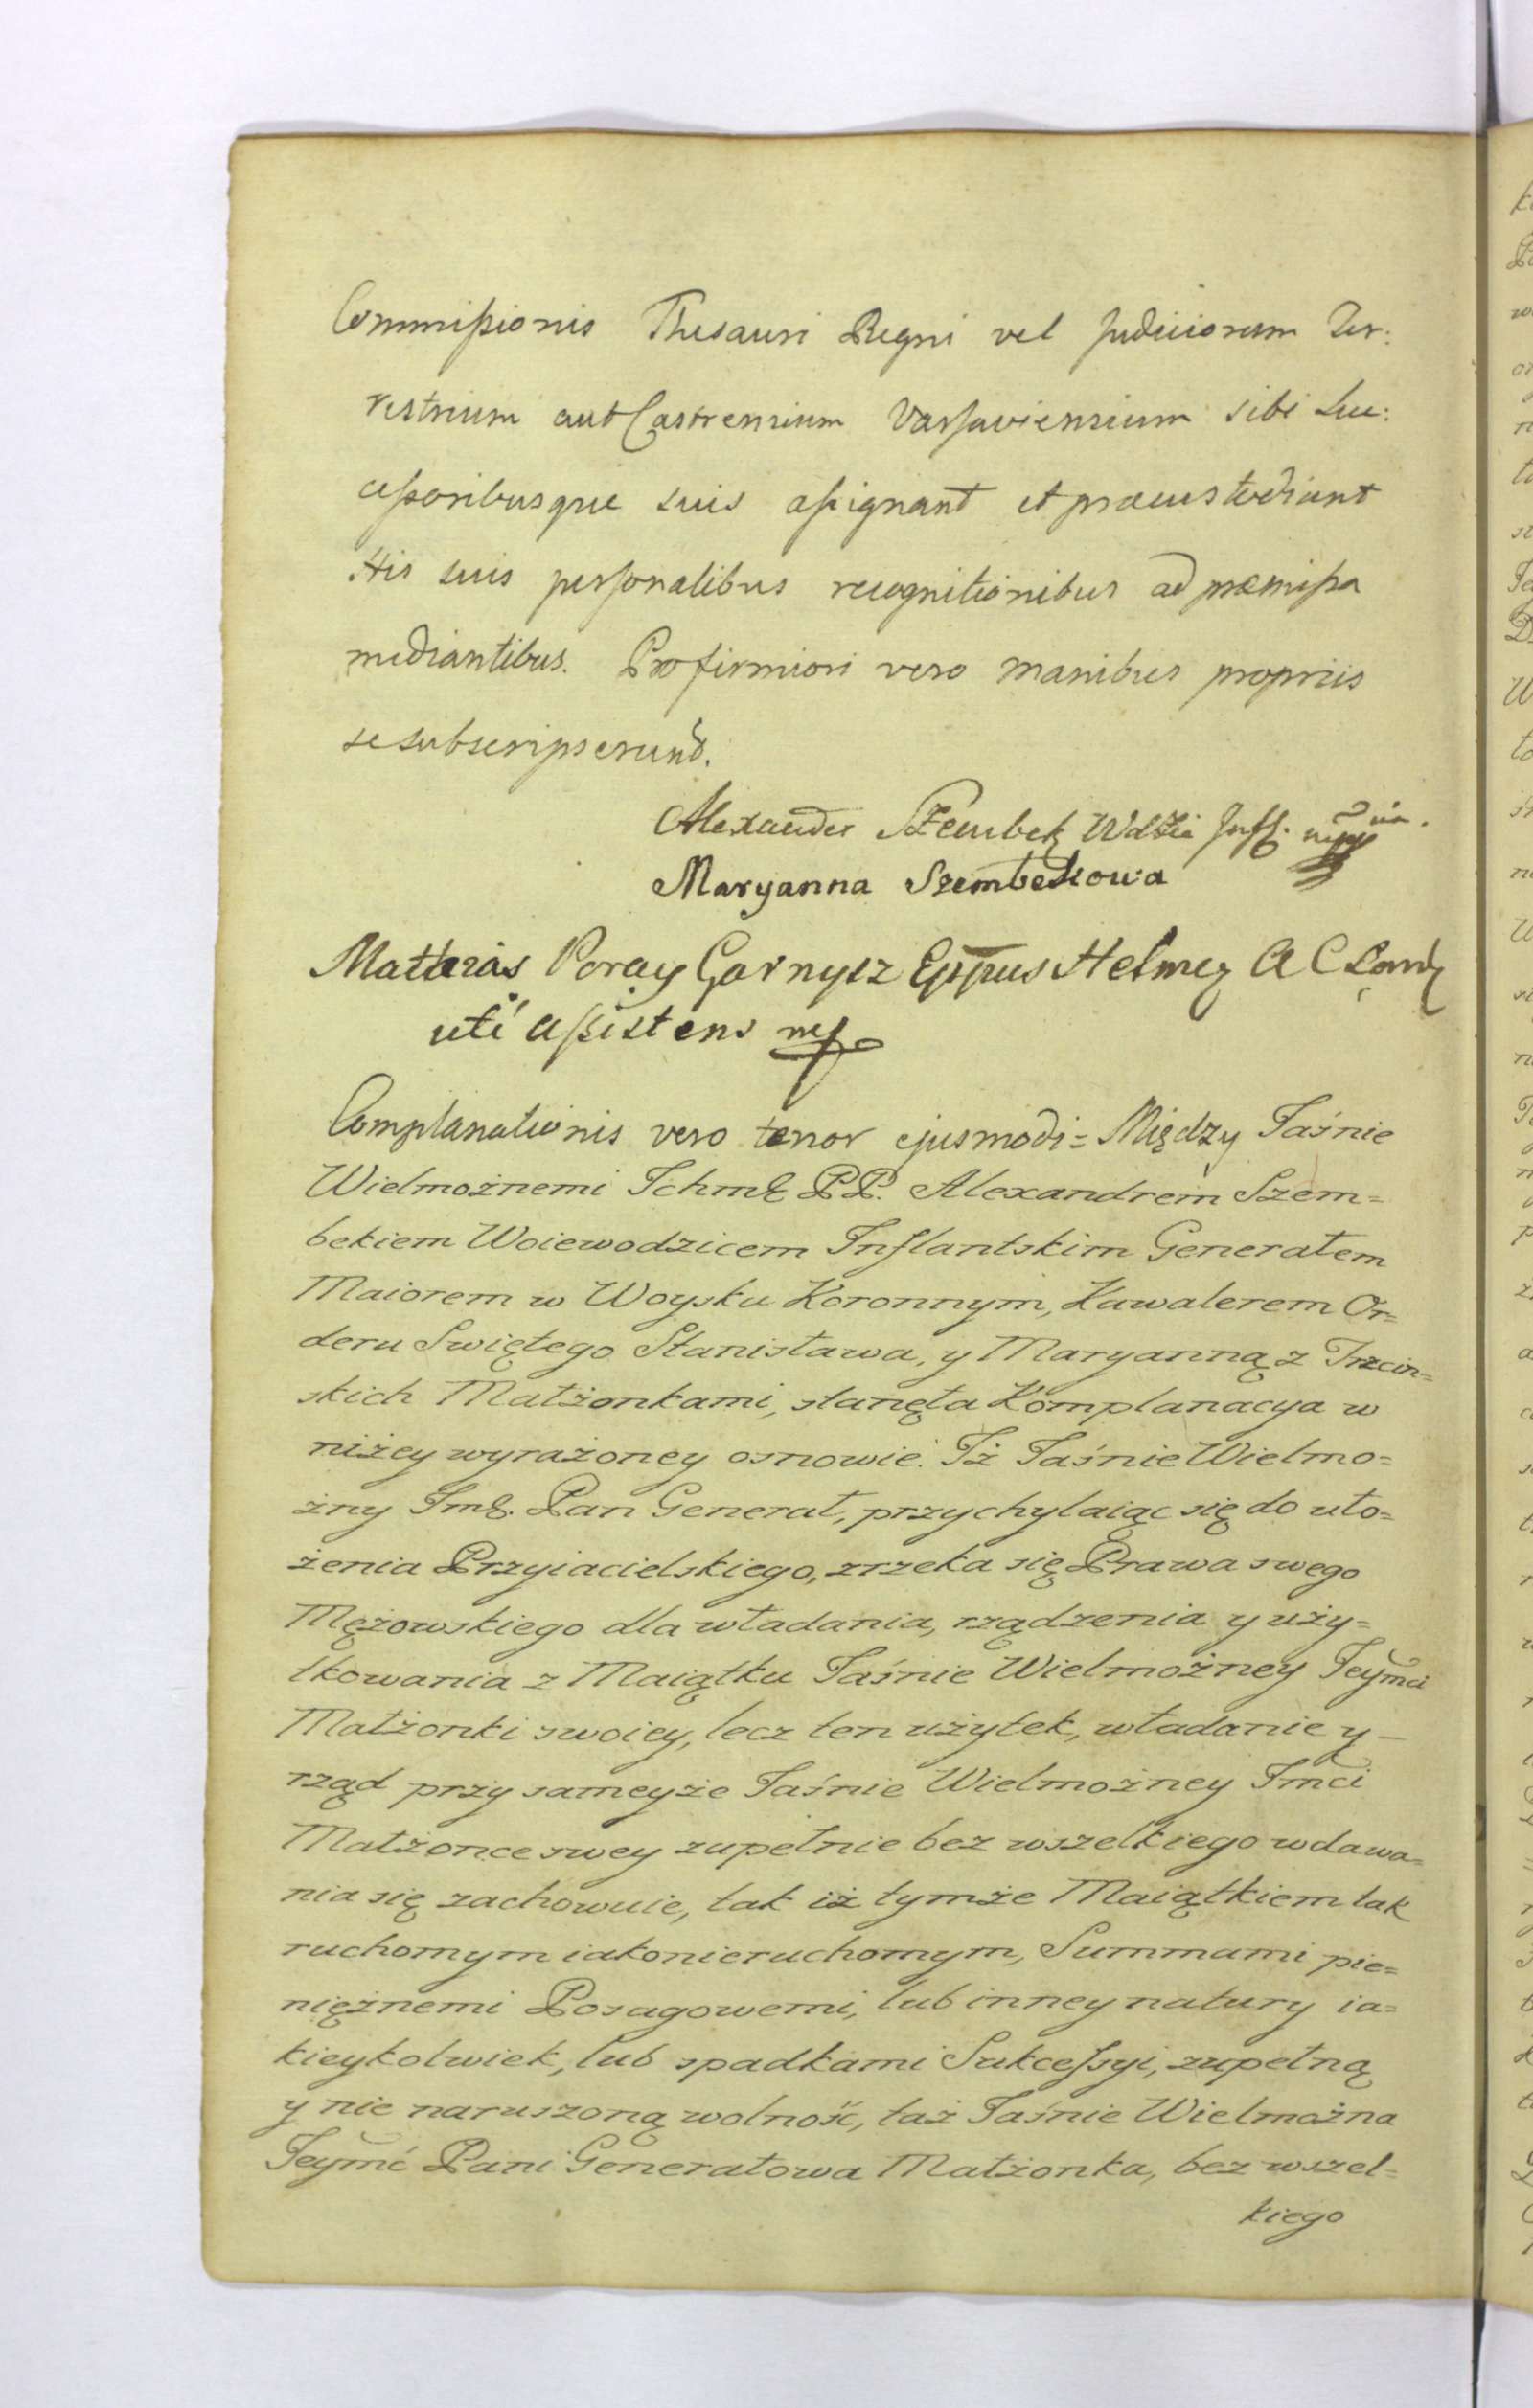 Commißionis Thesauri Regni vel Judiciorum Ter:
restrium aut Castrensium Varsaviensium sibi Suc:
ceßoribusque suis aßignant et præcustodiunt
His suis personalibus recognitionibus ad præmißa
mediantibus. Pro firmiori vero manibus propriis
se subscripserunt.
Alexander Szembek Wdzic Infl. mppria.
Maryanna Szembekowa
Matthias Poray Garnysz Eppus Helmey A C
uti aßistens mp
Complanationis vero tenor ejusmodi = Między Jaśnie
Wielmożnemi Ichmć PP. Alexandrem Szem=
bekiem Woiewodzicem Inflantskim Generałem
Maiorem w Woysku Koronnym, Kawalerem Or=
deru Swiętego Stanisława, y Maryanną z Trzcin=
skich Małżonkami, stanęła Komplanacya w
niżey wyrażoney osnowie. Iż Jaśnie Wielmo=
żny Imć. Pan Generał, przychylaiąc się do uło=
żenia Przyiacielskiego, zrzeka się Prawa swego
Mężowskiego dla władania, rządzenia y uży=
tkowania z Maiątku Jaśnie Wielmożney Jeymci
Małżonki swoiey, lecz ten użytek, władanie y
rząd przy sameyże Jaśnie Wielmożney Imci
Małżonce swey zupełnie bez wszelkiego wdawa=
nia się zachowuie, tak iż tymże Maiątkiem tak
ruchomym iako nieruchomym, Summami pie=
niężnemi Posagowemi, lub inney natury ia=
kieykolwiek, lub spadkami Sukceſsyi, zupełną
y nie naruszoną wolność, taż Jaśnie Wielmożna
Jeymć Pani Generałowa Małżonka, bez wszel=
kiego